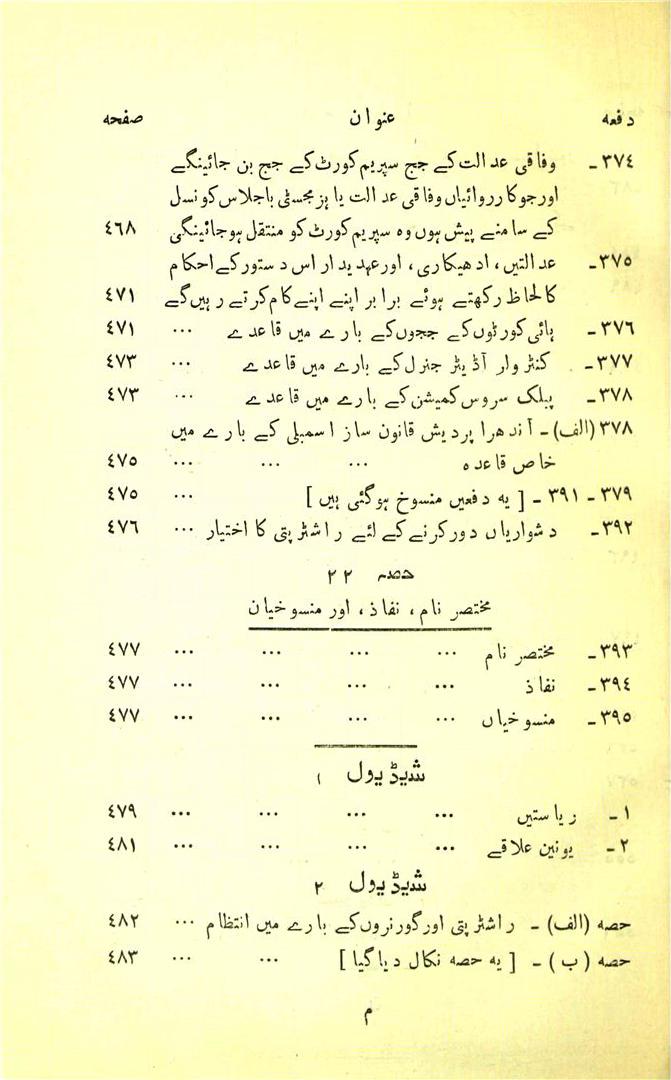 دفعہ عنوان صفحہ
۳۷٤- وفاقی عدالت کے جج سپریم کورٹ کے جج بن جائینگے
اور جو کارروائیاں وفاقی عدالت یا ہز مجسٹی باجلاس کونسل
کے سامنے پیش ہوں وہ سپریم کورٹ کو منتقل ہوجائینگی ٤٦۸
۳۷۵- عدالتیں، ادھیکاری، اور عہدیدار اس دستور کے احکام
کا لحاظ رکھتے ہوئے برابر اپنے اپنے کام کرتے رہیں گے ٤۷۱
۳۷٦- ہائی کورٹوں کے ججوں کے بارے میں قاعدے ... ٤۷۱
۳۷۷- کنٹرولر آڈیٹر جنرل کے بارے میں قاعدے ... ٤۷۳
۳۷۸- پبلک سروس کمیشن کے بارے میں قاعدے ... ٤۷۳
۳۷۸ (الف)- آندھرا پردیش قانون ساز اسمبلی کے بارے میں
خاص قاعدہ ... ... ... ٤۷۵
۳۷۹ - ۳۹۱ - [ یہ دفعیں منسوخ ہوگئی ہیں ] ... ٤۷۵
۳۹۲- دشواریاں دور کرنے کے لئے راشٹرپتی کا اختیار ... ٤۷٦
حصہ ۲۲
مختصر نام، نفاذ، اور منسوخیاں
۳۹۳- مختصر نام ... ... ... ... ٤۷۷
۳۹٤- نفاذ ... ... ... ... ٤۷۷
۳۹۵- منسوخیاں ... ... ... ... ٤۷۷
شیڈیول ۱
۱- ریاستیں ... ... ... ... ٤۷۹
۲- یونین علاقے ... ... ... ... ٤۸۱
شیڈیول ۲
حصہ (الف)- راشٹرپتی اور گورنروں کے بارے میں انتظام ... ٤۸۲
حصہ (ب)- [ یہ حصہ نکال دیا گیا ] ... ... ٤۸۳
م